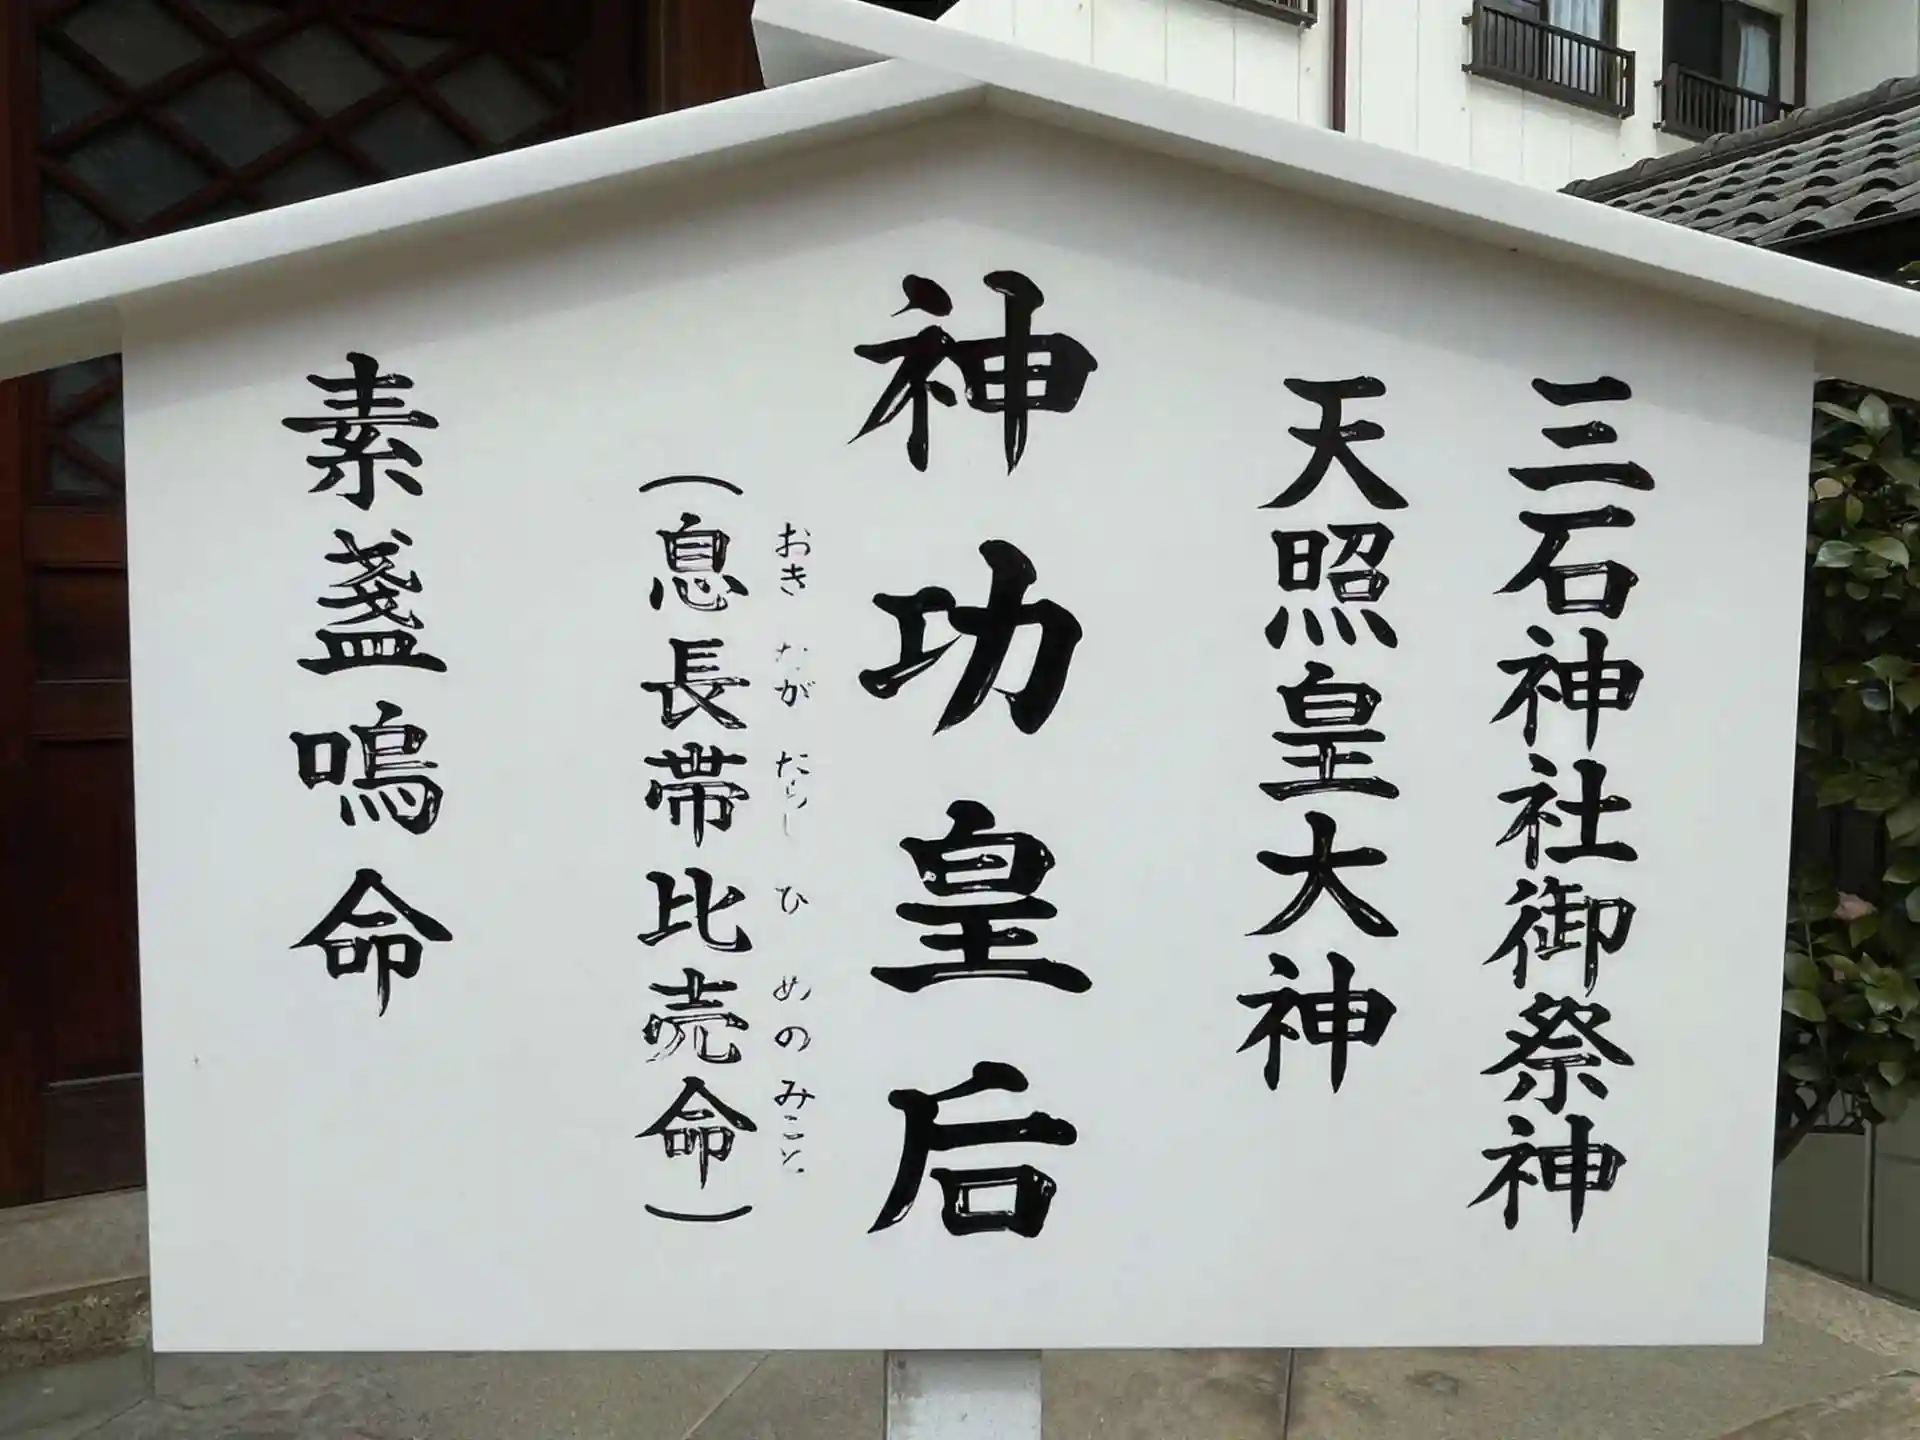 三石神社御祭神
天照皇大神
神功皇后
おきながたらしひめのみこと
(息長帯比売命)
素盞嗚命